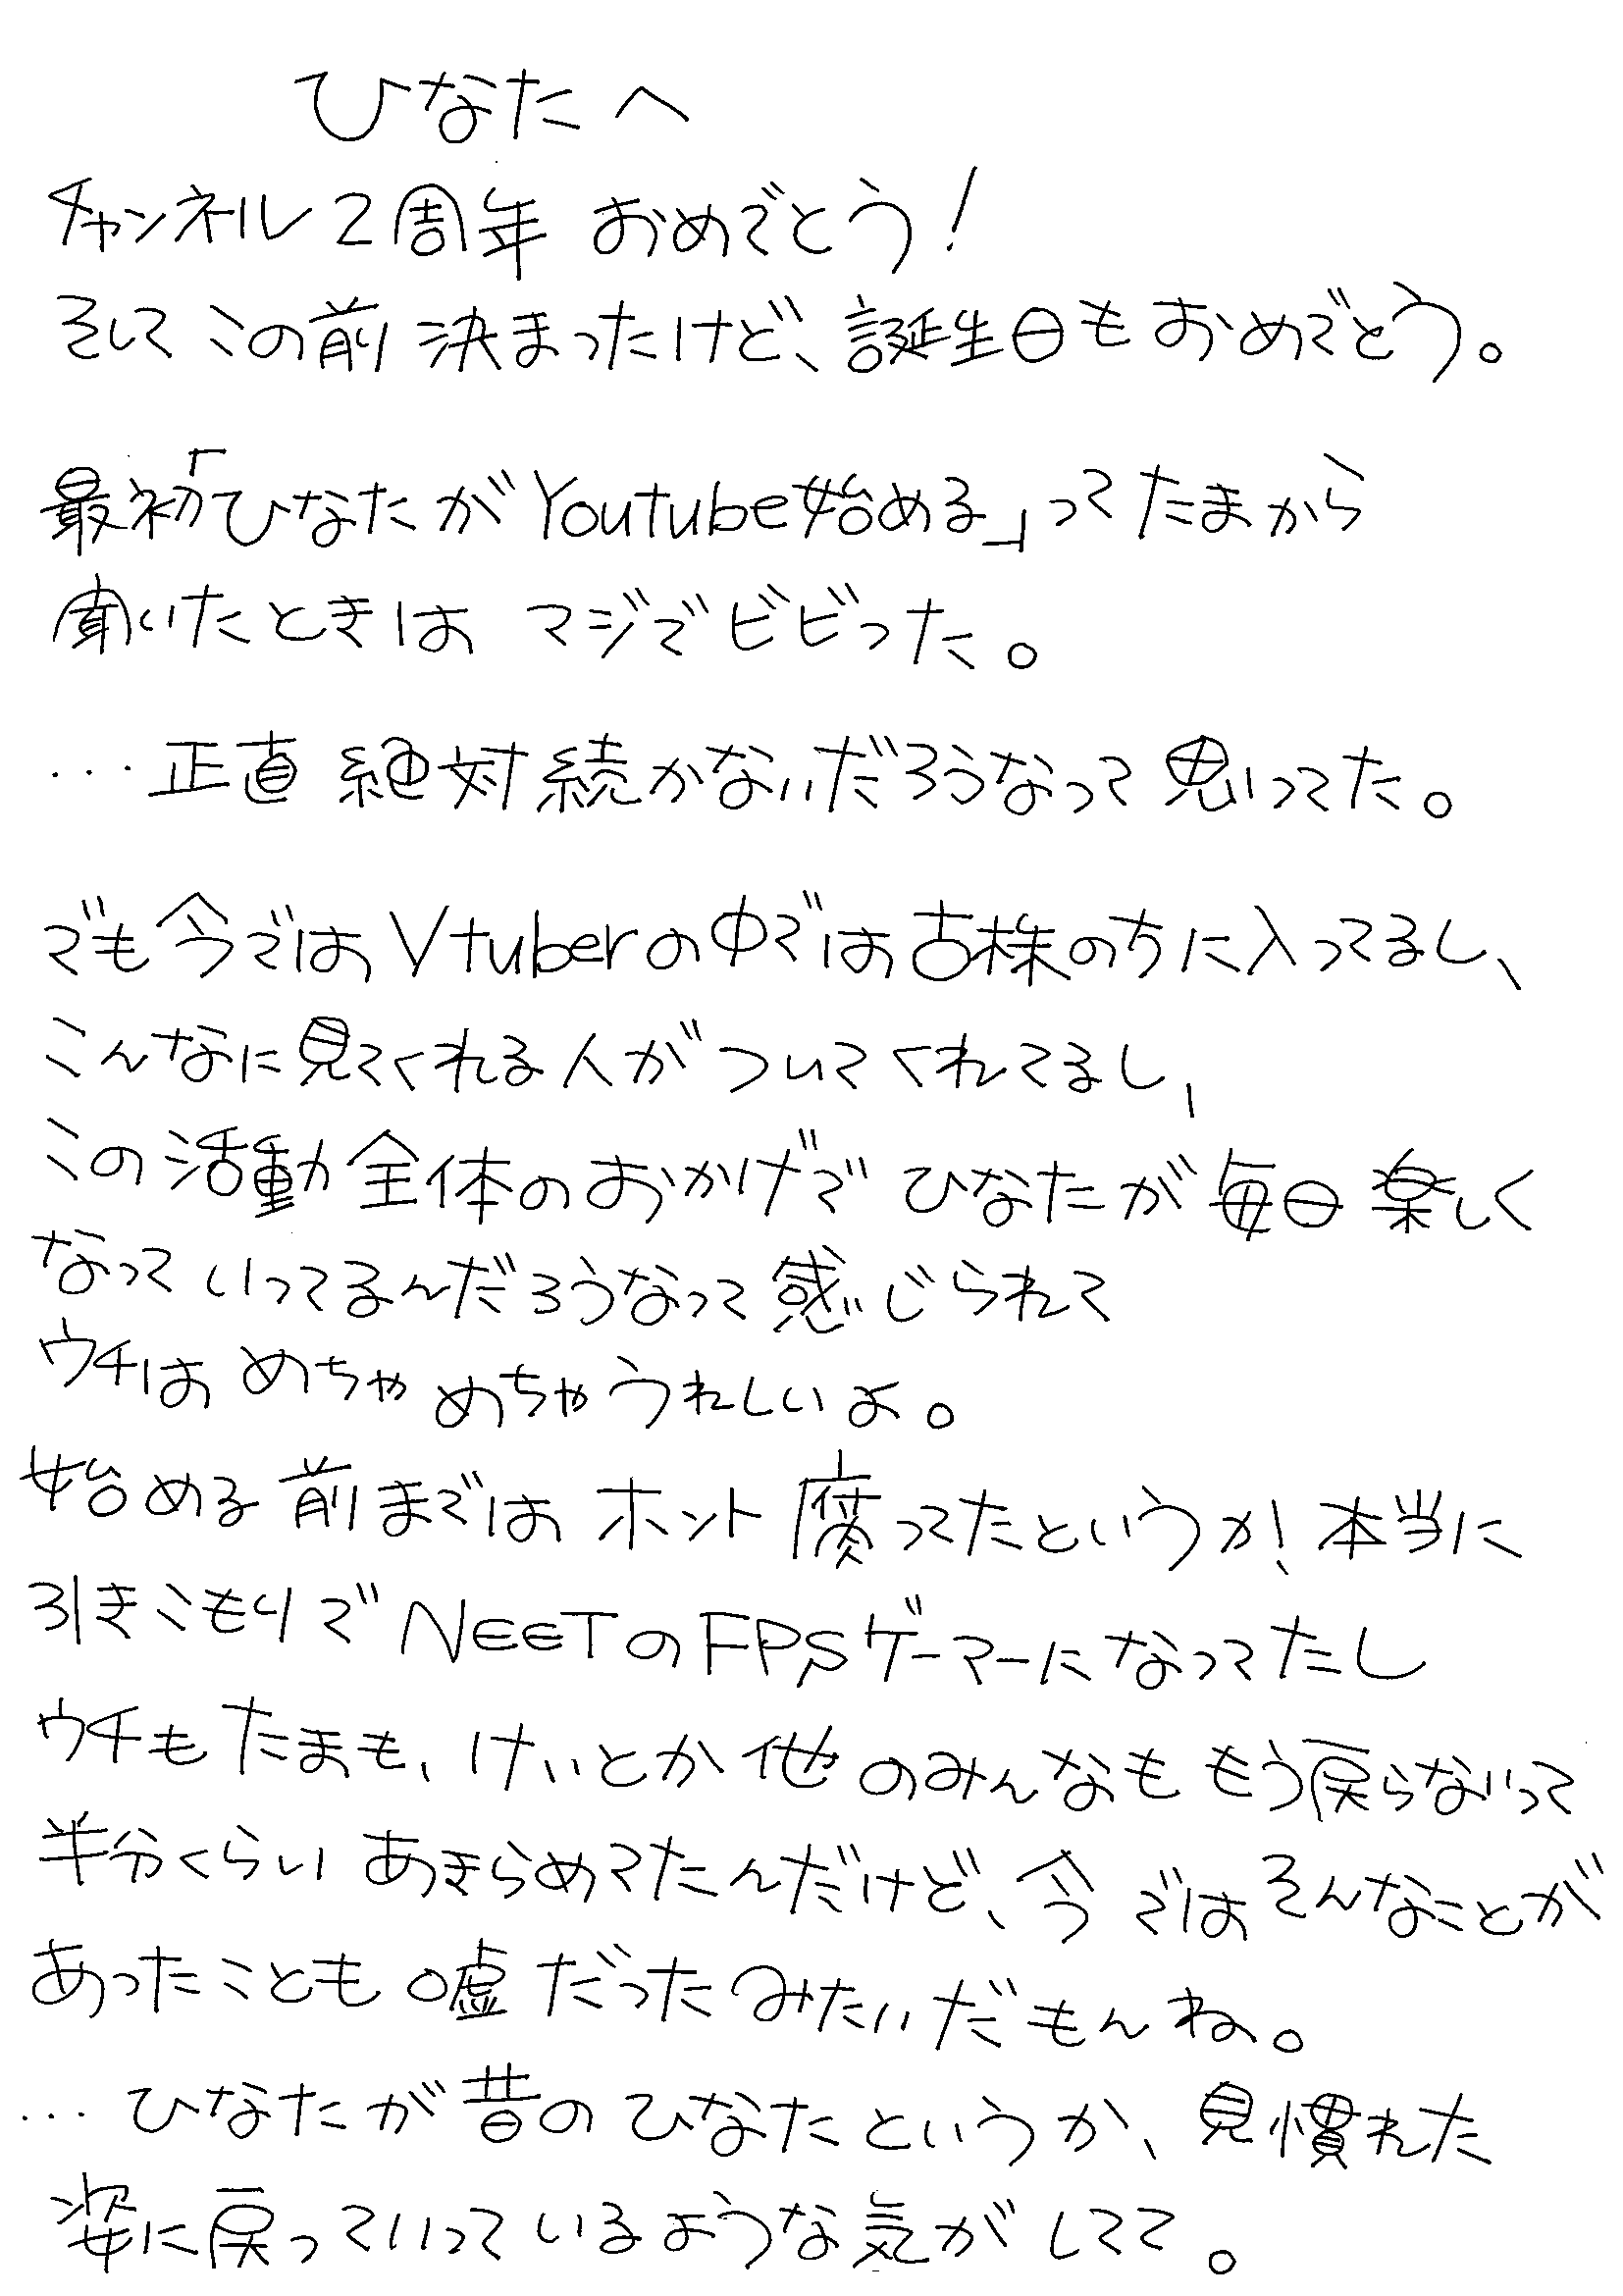 ひなたへ
チャンネル2周年 おめでとう!
そしてこの前決まったけど、誕生日もおめでとう。
最初「ひなたがYoutube始める」ってたまから
聞いたときは マジでビビった。
…正直 絶対続かないだろうなって思ってた。
でも今ではVtuberの中では古株の方に入ってるし、
こんなに見てくれる人がついてくれてるし、
この活動全体のおかげで ひなたが毎日楽しく
なっていってるんだろうなって感じられて
ウチはめちゃめちゃうれしいよ。
始める前まではホント腐ってたというか!本当に
引きこもりでNEETのFPSゲーマーになってたし
ウチもたまも、けいとか他のみんなももう戻らないって
半分くらいあきらめてたんだけど、今ではそんなことが
あったことも嘘だったみたいだもんね。
…ひなたが昔のひなたというか、見慣れた
姿に戻っていっているような気がしてて。